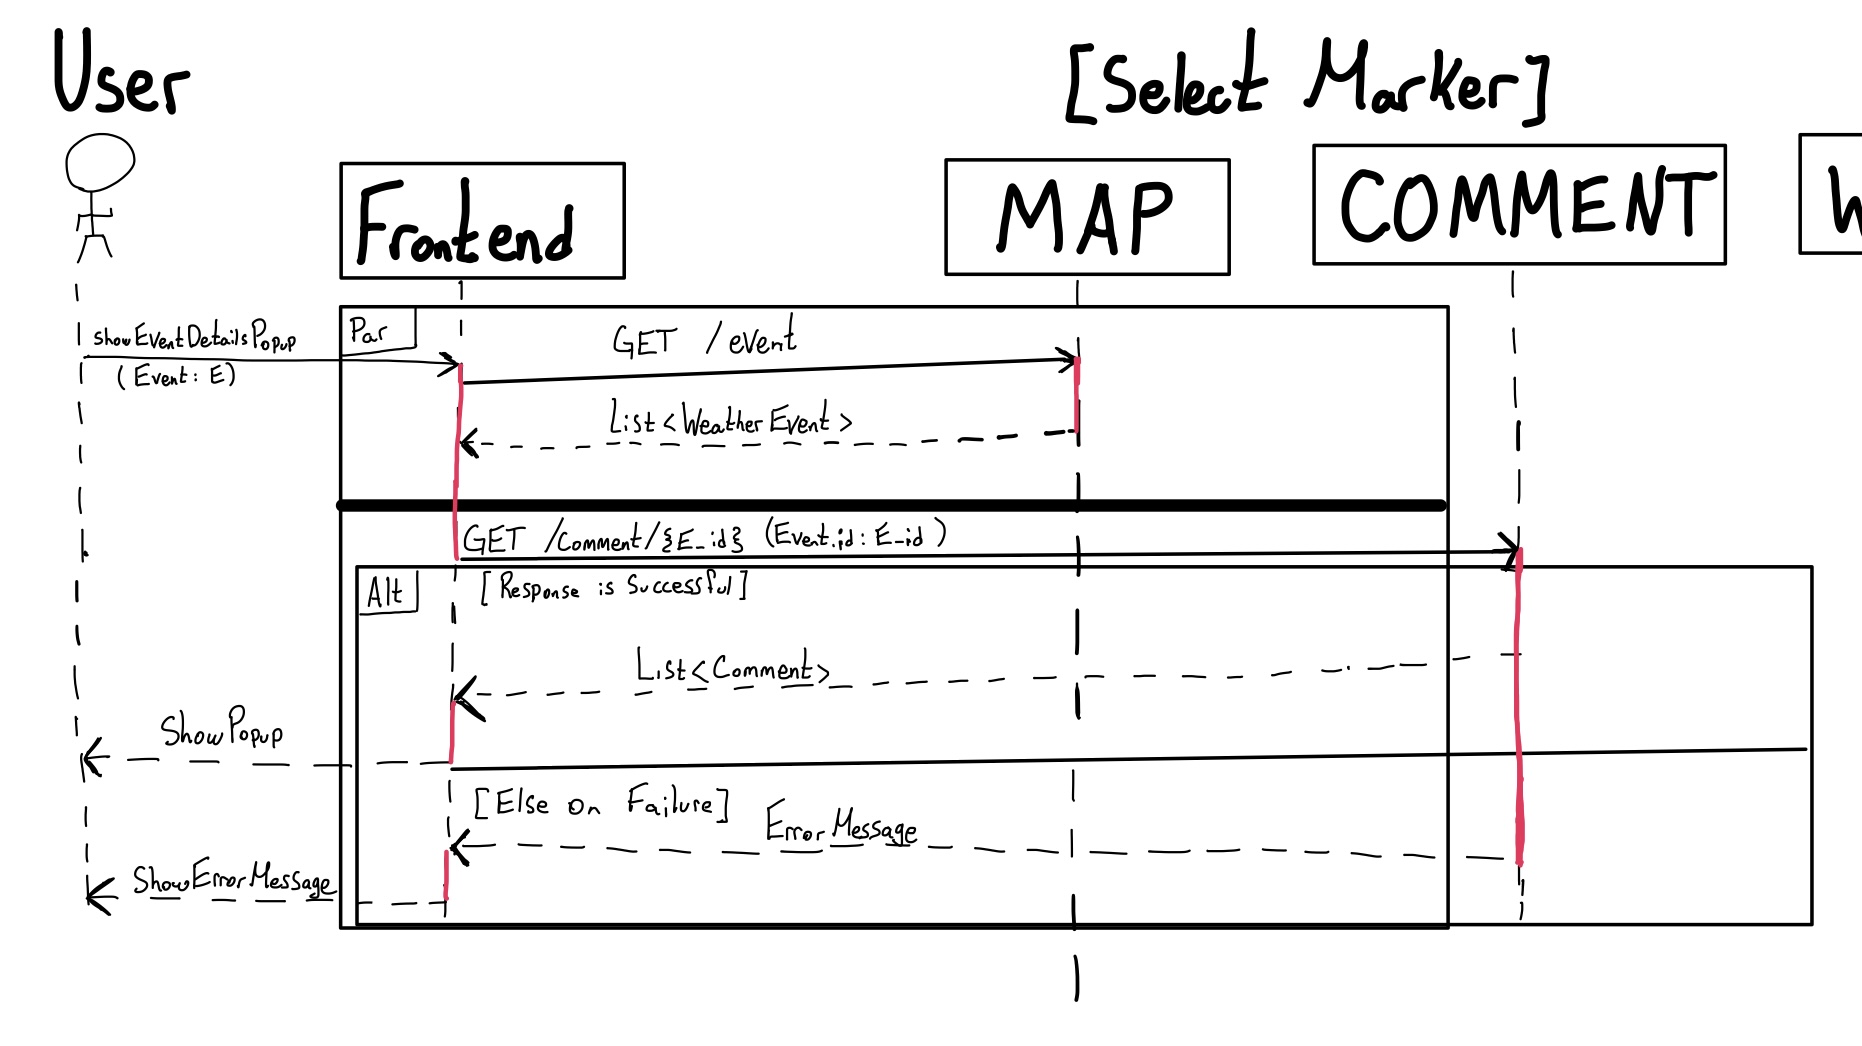 User
[Select Marker]
Frontend
MAP
COMMENT
showEventDetailsPopup
(Event: E)
Par
GET /event
List<WeatherEvent>
GET /comment/{E_id} (Event.id: E_id)
Alt
[Response is Successful]
List<Comment>
ShowPopup
[Else on Failure]
ErrorMessage
ShowErrorMessage